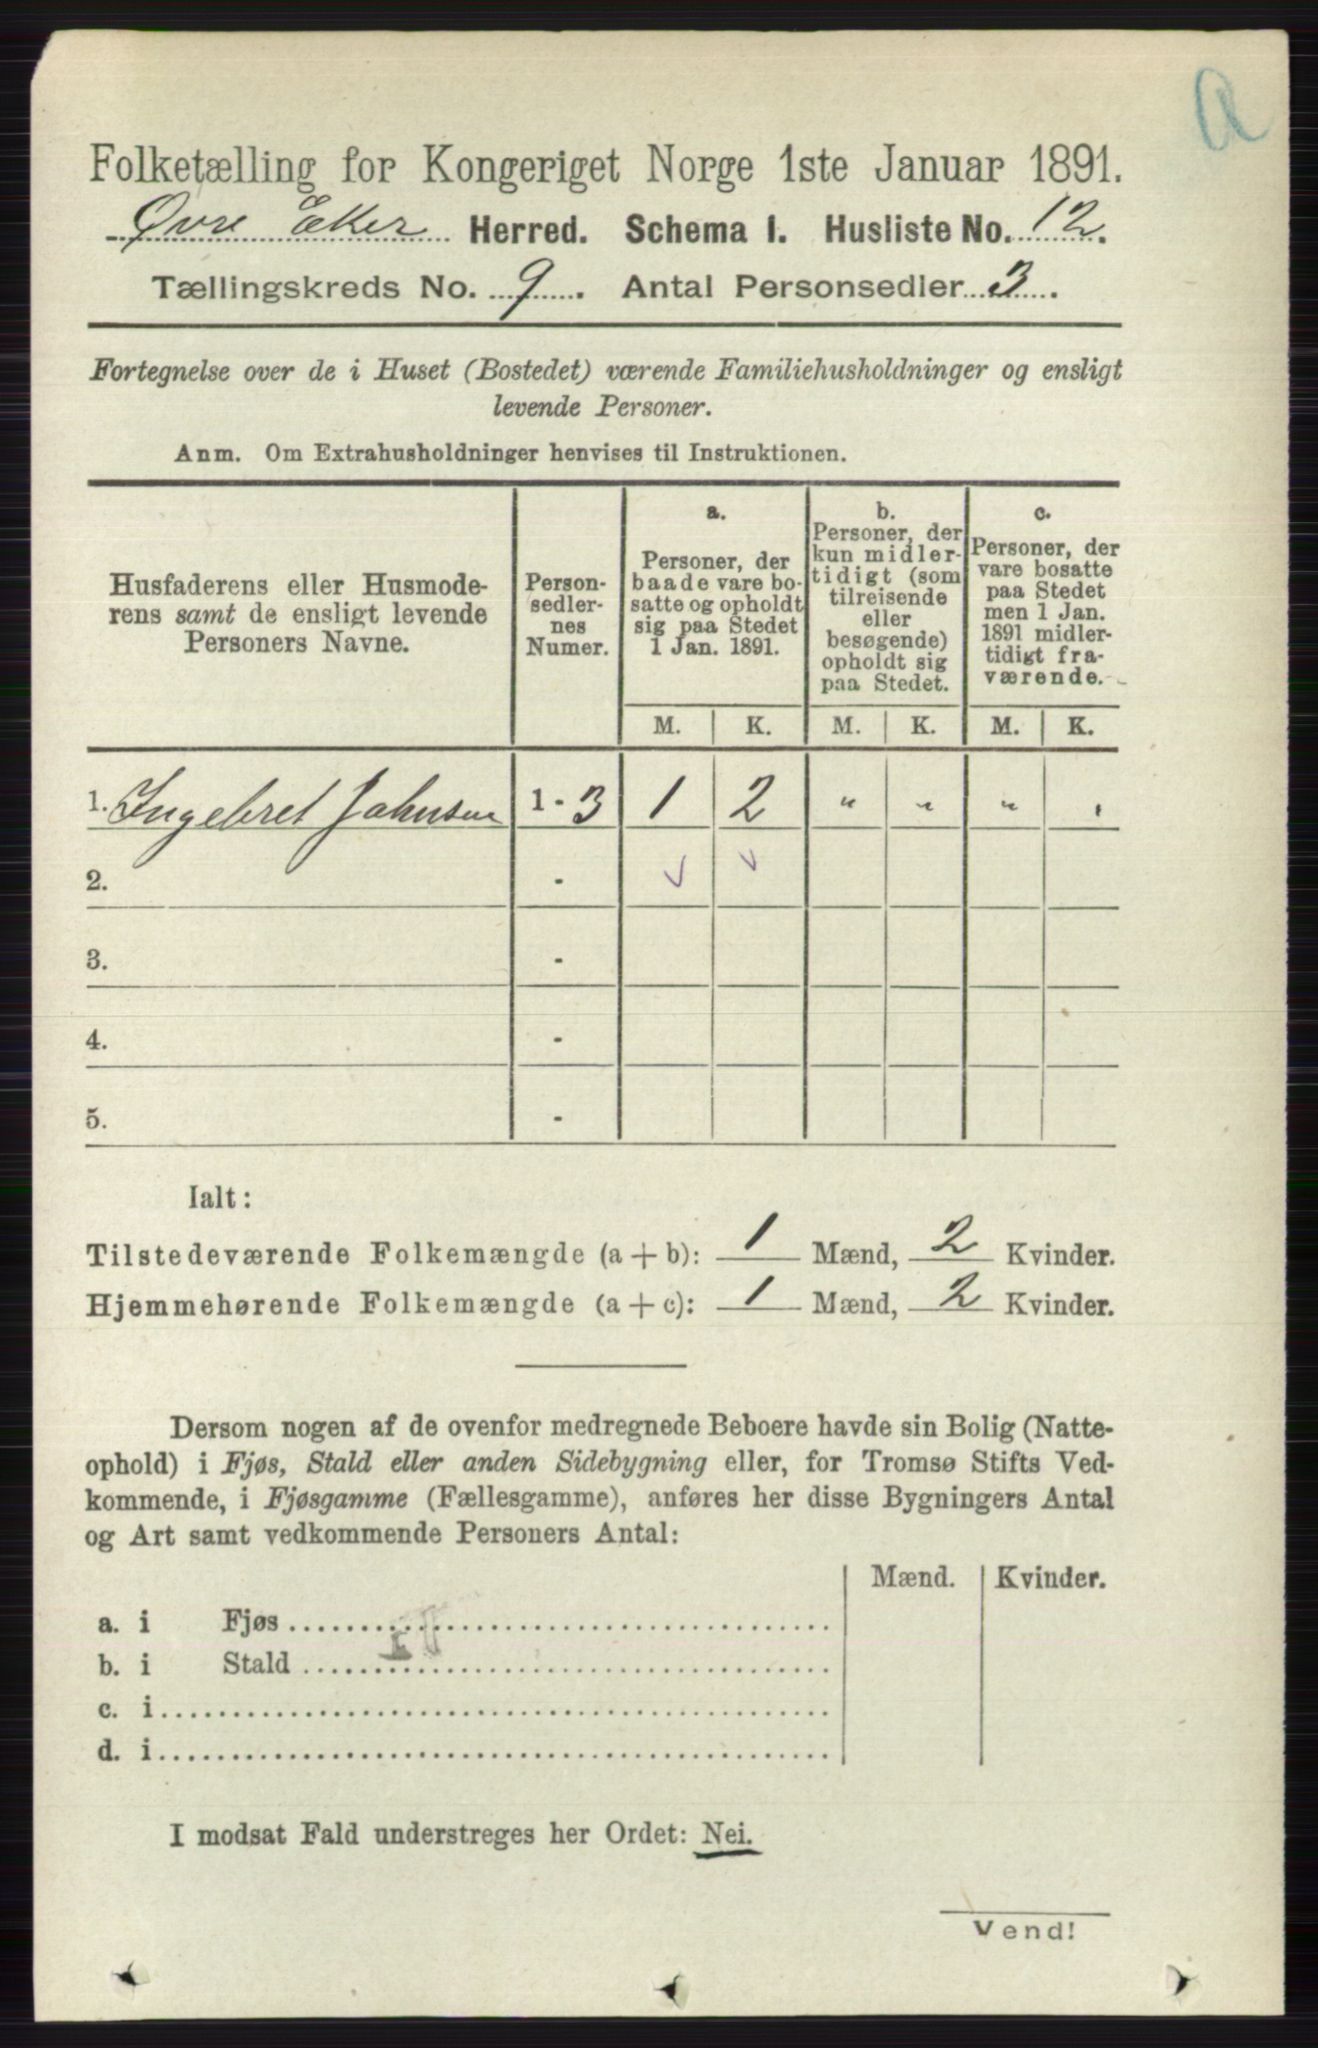 a
Folketælling for Kongeriget Norge 1ste Januar 1891.
Øvre Eker Herred. Schema I. Husliste No. 12.
Tællingskreds No. 9. Antal Personsedler 3.
Fortegnelse over de i Huset (Bostedet) værende Familiehusholdninger og ensligt
levende Personer.
Anm. Om Extrahusholdninger henvises til Instruktionen.
Husfaderens eller Husmode-
rens samt de ensligt levende
Personers Navne.
Person-
sedler-
nes
Numer.
a.
Personer, der
baade vare bo-
satte og opholdt
sig paa Stedet
1 Jan. 1891.
b.
Personer, der
kun midler-
tidigt (som
tilreisende
eller
besøgende)
opholdt sig
paa Stedet.
c.
Personer, der
vare bosatte
paa Stedet
men 1 Jan.
1891 midler-
tidigt fra-
værende.
M. K. M. K. M. K.
1. Ingebret Johnsen 1 - 3 1 2 " " " "
2. -
3. -
4. -
5. -
Ialt:
Tilstedeværende Folkemængde (a + b): 1 Mænd, 2 Kvinder.
Hjemmehørende Folkemængde (a + c): 1 Mænd, 2 Kvinder.
Dersom nogen af de ovenfor medregnede Beboere havde sin Bolig (Natte-
ophold) i Fjøs, Stald eller anden Sidebygning eller, for Tromsø Stifts Ved-
kommende, i Fjøsgamme (Fællesgamme), anføres her disse Bygningers Antal
og Art samt vedkommende Personers Antal:
Mænd. Kvinder.
a. i Fjøs
b. i Stald
c. i
d. i
I modsat Fald understreges her Ordet: Nei.
Vend!